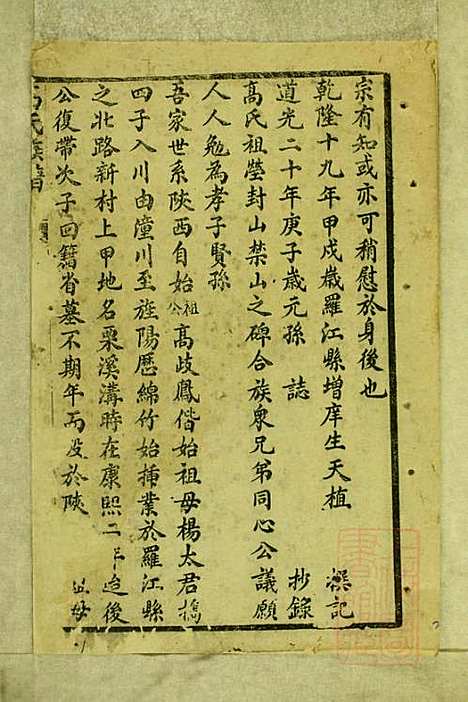 宗有知或亦可稍慰於身後也
乾隆十九年甲戌歲羅江縣增庠生天植 撰記
道光二十年庚子歲元孫 誌 抄錄
高氏祖塋封山禁山之碑合族衆兄弟同心公議願
人人勉為孝子賢孫
吾家世系陝西自始祖公高歧鳳偕始祖母楊太君攜
四子入川由潼川至旌陽歷綿竹始揷業於羅江縣
之北路新村上甲地名栗溪溝時在康熙二年迨後
公復帶次子回籍省墓不期年而没於陝 母
氏族譜